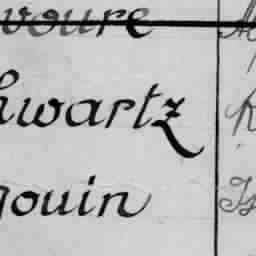 voure
hwartz
gouin